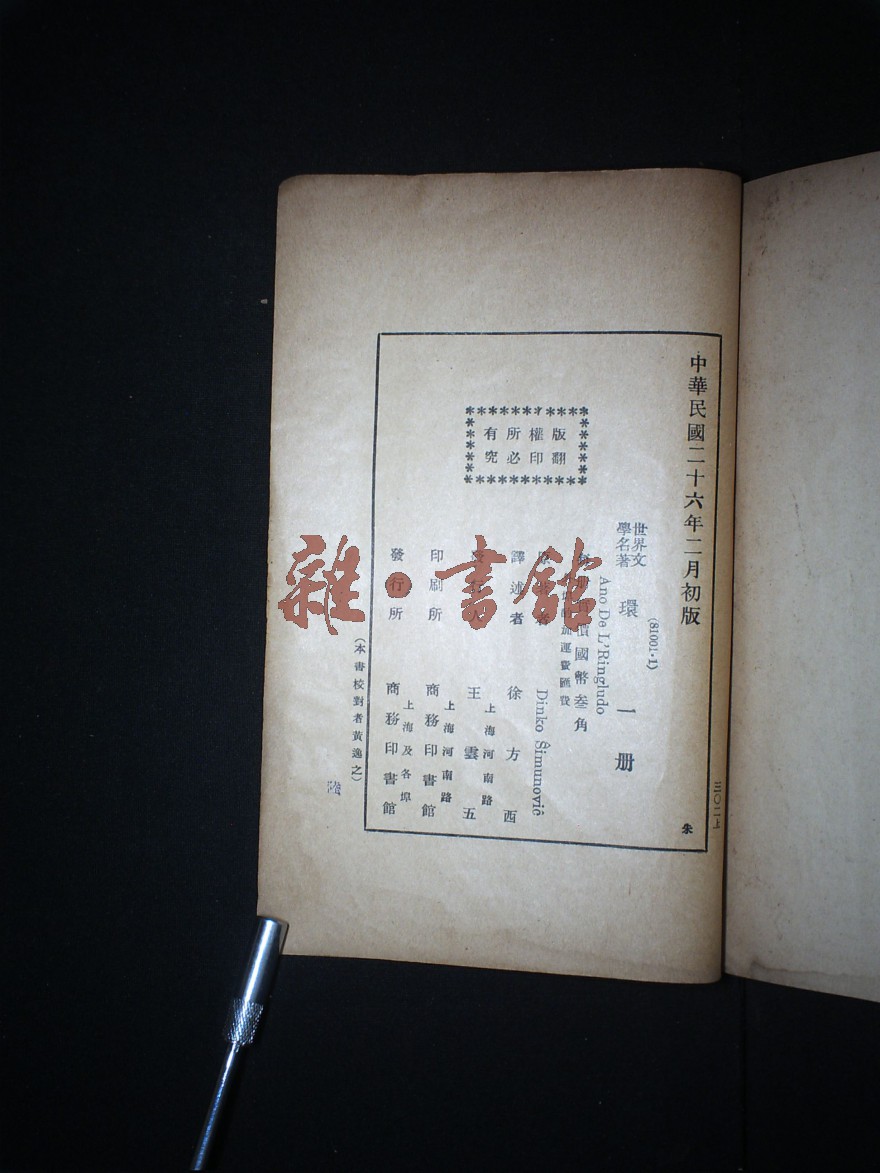 中華民國二十六年二月初版
三〇二上
朱
(81001·1)
世界文
學名著
環 一册
Ano De L'Ringludo
價國幣叁角
運費匯費
Dinko Ŝimunoviĉ
譯述者 徐方西
王雲五
上海河南路
印刷所 商務印書館
上海河南路
發行所 商務印書館
上海及各埠
版權所有
翻印必究
(本書校對者黃逸之)
雜·書館